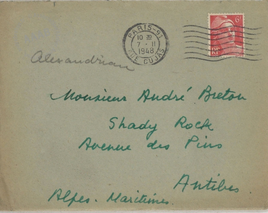 PARIS
10 H
7 - II
1948
Alexandrian
Monsieur André Breton
Shady Rock
Avenue des Pins
Antibes
Alpes-Maritimes